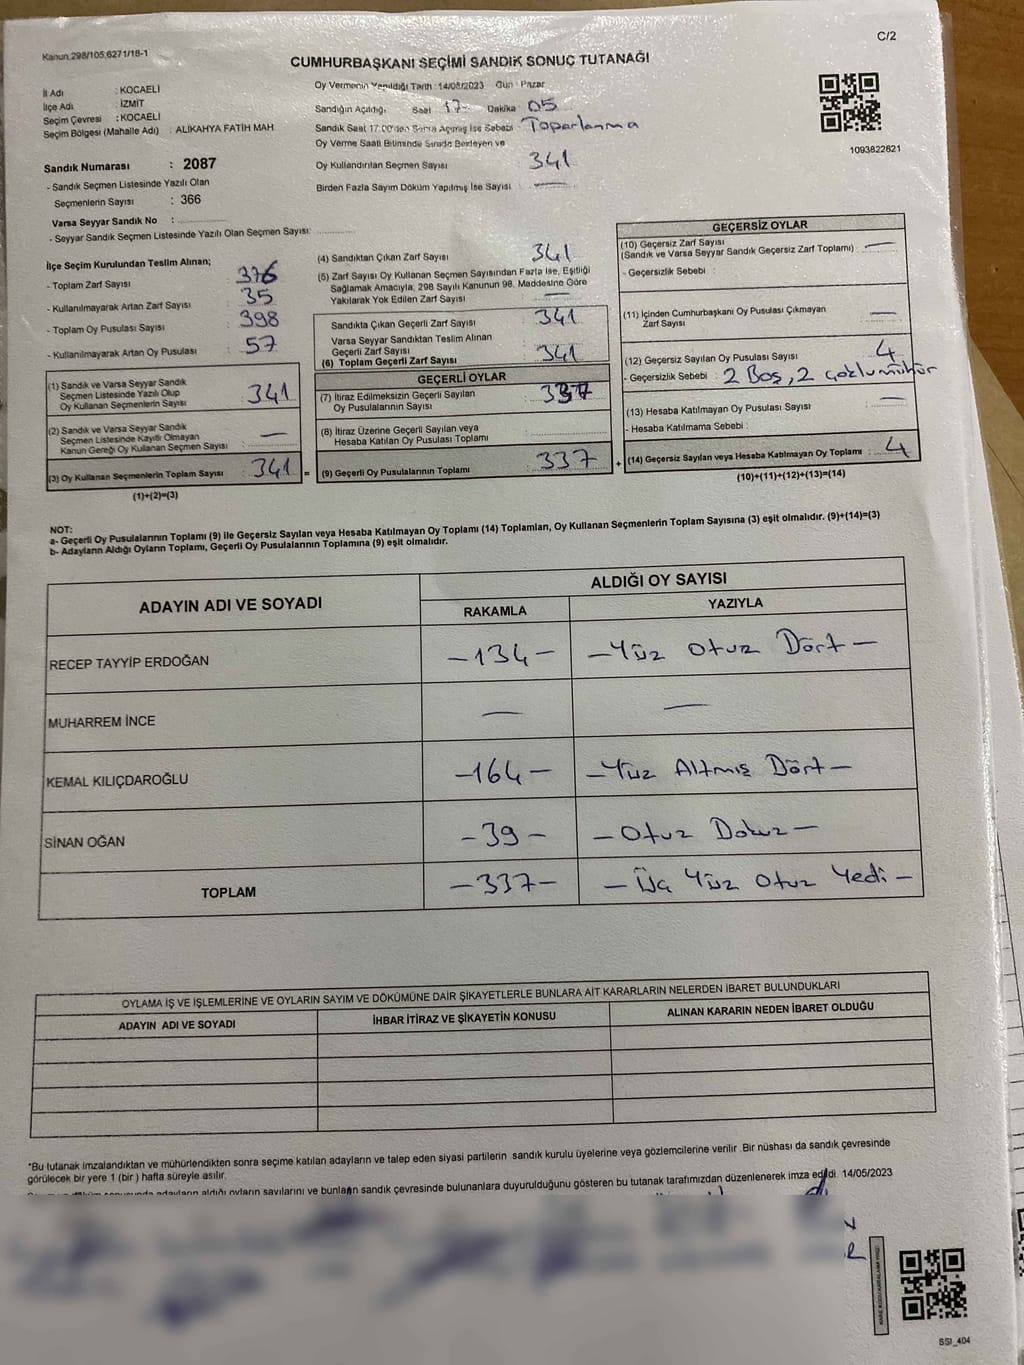 Kanun:298/105;6271/18-1
C/2
CUMHURBAŞKANI SEÇİMİ SANDIK SONUÇ TUTANAĞI
İl Adı : KOCAELİ
İlçe Adı : İZMİT
Seçim Çevresi : KOCAELİ
Seçim Bölgesi (Mahalle Adı) : ALİKAHYA FATİH MAH.
Oy Vermenin Yapıldığı Tarih : 14/05/2023 Gün : Pazar
Sandığın Açıldığı; Saat 17 Dakika 05
Sandık Saat 17.00'den Sonra Açılmış İse Sebebi : Toparlanma
Oy Verme Saati Bitiminde Sırada Bekleyen ve
Oy Kullandırılan Seçmen Sayısı 341
Birden Fazla Sayım Döküm Yapılmış İse Sayısı : —
1093822621
Sandık Numarası : 2087
- Sandık Seçmen Listesinde Yazılı Olan
Seçmenlerin Sayısı : 366
Varsa Seyyar Sandık No :
- Seyyar Sandık Seçmen Listesinde Yazılı Olan Seçmen Sayısı:
İlçe Seçim Kurulundan Teslim Alınan;
- Toplam Zarf Sayısı : 376
- Kullanılmayarak Artan Zarf Sayısı : 35
- Toplam Oy Pusulası Sayısı : 398
- Kullanılmayarak Artan Oy Pusulası : 57
(1) Sandık ve Varsa Seyyar Sandık
Seçmen Listesinde Yazılı Olup
Oy Kullanan Seçmenlerin Sayısı : 341
(2) Sandık ve Varsa Seyyar Sandık
Seçmen Listesinde Kayıtlı Olmayan
Kanun Gereği Oy Kullanan Seçmen Sayısı : —
(3) Oy Kullanan Seçmenlerin Toplam Sayısı : 341 =
(1)+(2)=(3)
(4) Sandıktan Çıkan Zarf Sayısı 341
(5) Zarf Sayısı Oy Kullanan Seçmen Sayısından Fazla İse, Eşitliği
Sağlamak Amacıyla; 298 Sayılı Kanunun 98. Maddesine Göre
Yakılarak Yok Edilen Zarf Sayısı : —
Sandıkta Çıkan Geçerli Zarf Sayısı : 341
Varsa Seyyar Sandıktan Teslim Alınan
Geçerli Zarf Sayısı
(6) Toplam Geçerli Zarf Sayısı : 341
GEÇERLİ OYLAR
(7) İtiraz Edilmeksizin Geçerli Sayılan
Oy Pusulalarının Sayısı : 337
(8) İtiraz Üzerine Geçerli Sayılan veya
Hesaba Katılan Oy Pusulası Toplamı
(9) Geçerli Oy Pusulalarının Toplamı : 337 +
GEÇERSİZ OYLAR
(10) Geçersiz Zarf Sayısı
(Sandık ve Varsa Seyyar Sandık Geçersiz Zarf Toplamı) : —
- Geçersizlik Sebebi :
(11) İçinden Cumhurbaşkanı Oy Pusulası Çıkmayan
Zarf Sayısı : —
(12) Geçersiz Sayılan Oy Pusulası Sayısı : 4
- Geçersizlik Sebebi : 2 Boş, 2 çoklu mühür
(13) Hesaba Katılmayan Oy Pusulası Sayısı : —
- Hesaba Katılmama Sebebi :
(14) Geçersiz Sayılan veya Hesaba Katılmayan Oy Toplamı : 4
(10)+(11)+(12)+(13)=(14)
NOT:
a- Geçerli Oy Pusulalarının Toplamı (9) ile Geçersiz Sayılan veya Hesaba Katılmayan Oy Toplamı (14) Toplamları, Oy Kullanan Seçmenlerin Toplam Sayısına (3) eşit olmalıdır. (9)+(14)=(3)
b- Adayların Aldığı Oyların Toplamı, Geçerli Oy Pusulalarının Toplamına (9) eşit olmalıdır.
ADAYIN ADI VE SOYADI
ALDIĞI OY SAYISI
RAKAMLA YAZIYLA
RECEP TAYYİP ERDOĞAN -134- -Yüz Otuz Dört-
MUHARREM İNCE — —
KEMAL KILIÇDAROĞLU -164- -Yüz Altmış Dört-
SİNAN OĞAN -39- -Otuz Dokuz-
TOPLAM -337- -Üç Yüz Otuz Yedi-
OYLAMA İŞ VE İŞLEMLERİNE VE OYLARIN SAYIM VE DÖKÜMÜNE DAİR ŞİKAYETLERLE BUNLARA AİT KARARLARIN NELERDEN İBARET BULUNDUKLARI
ADAYIN ADI VE SOYADI İHBAR İTİRAZ VE ŞİKAYETİN KONUSU ALINAN KARARIN NEDEN İBARET OLDUĞU
*Bu tutanak imzalandıktan ve mühürlendikten sonra seçime katılan adayların ve talep eden siyasi partilerin sandık kurulu üyelerine veya gözlemcilerine verilir. Bir nüshası da sandık çevresinde
görülecek bir yere 1 (bir) hafta süreyle asılır.
adayların aldığı oyların sayılarını ve bunların sandık çevresinde bulunanlara duyurulduğunu gösteren bu tutanak tarafımızdan düzenlenerek imza edildi. 14/05/2023
SSI_404